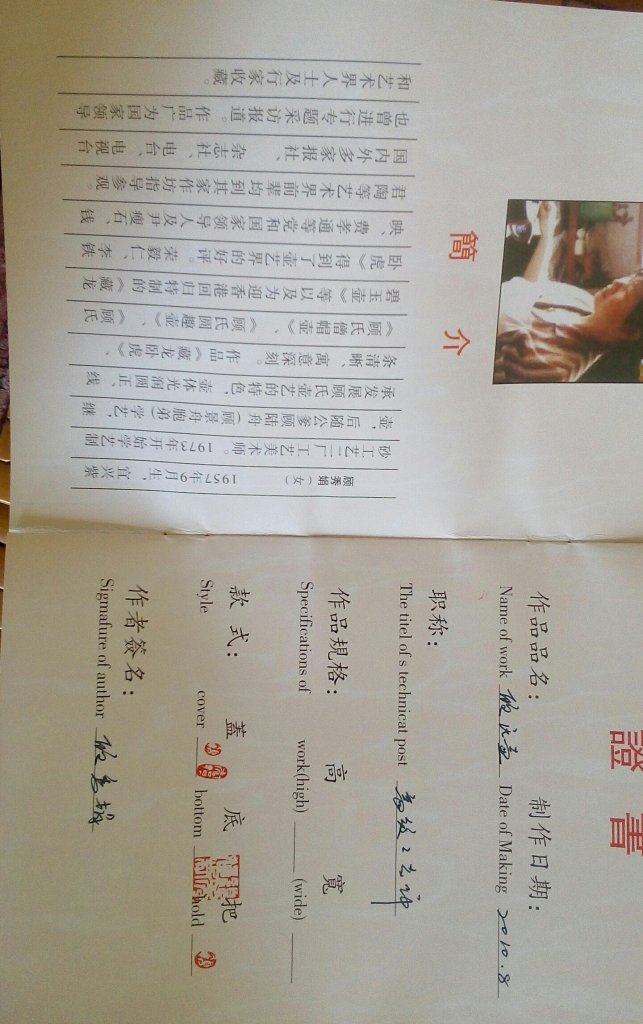 簡介
顾秀娟(女) 1957年9月生,宜兴紫
砂工艺二厂工艺美术师。1973年开始学艺制
壶,后随公爹顾陆舟(顾景舟胞弟)学艺,继
承发展顾氏壶艺的特色,壶体光润圆正、线
条清晰、寓意深刻。作品《藏龙卧虎》、
《顾氏僧帽壶》、《顾氏圆趣壶》、《顾氏
碧玉壶》等以及为迎香港回归特制的《藏龙
卧虎》得到了壶艺界的好评。荣毅仁、李铁
映、费孝通等党和国家领导人及尹瘦石、钱
君陶等艺术界前辈均到其家作坊指导参观。
国内外多家报社、杂志社、电台、电视台
也曾进行专题采访报道。作品广为国家领导
和艺术界人士及行家收藏。
證書
作品品名: 制作日期:
Name of work 顾氏壶 Date of Making 2010.8
职称:
The titel of s technicat post 高级工艺师
作品规格: 高 寬
Specifications of work(high) (wide)
款式: 蓋 底 把
Style cover bottom hold
作者签名:
Sigmafure of author 顾秀娟